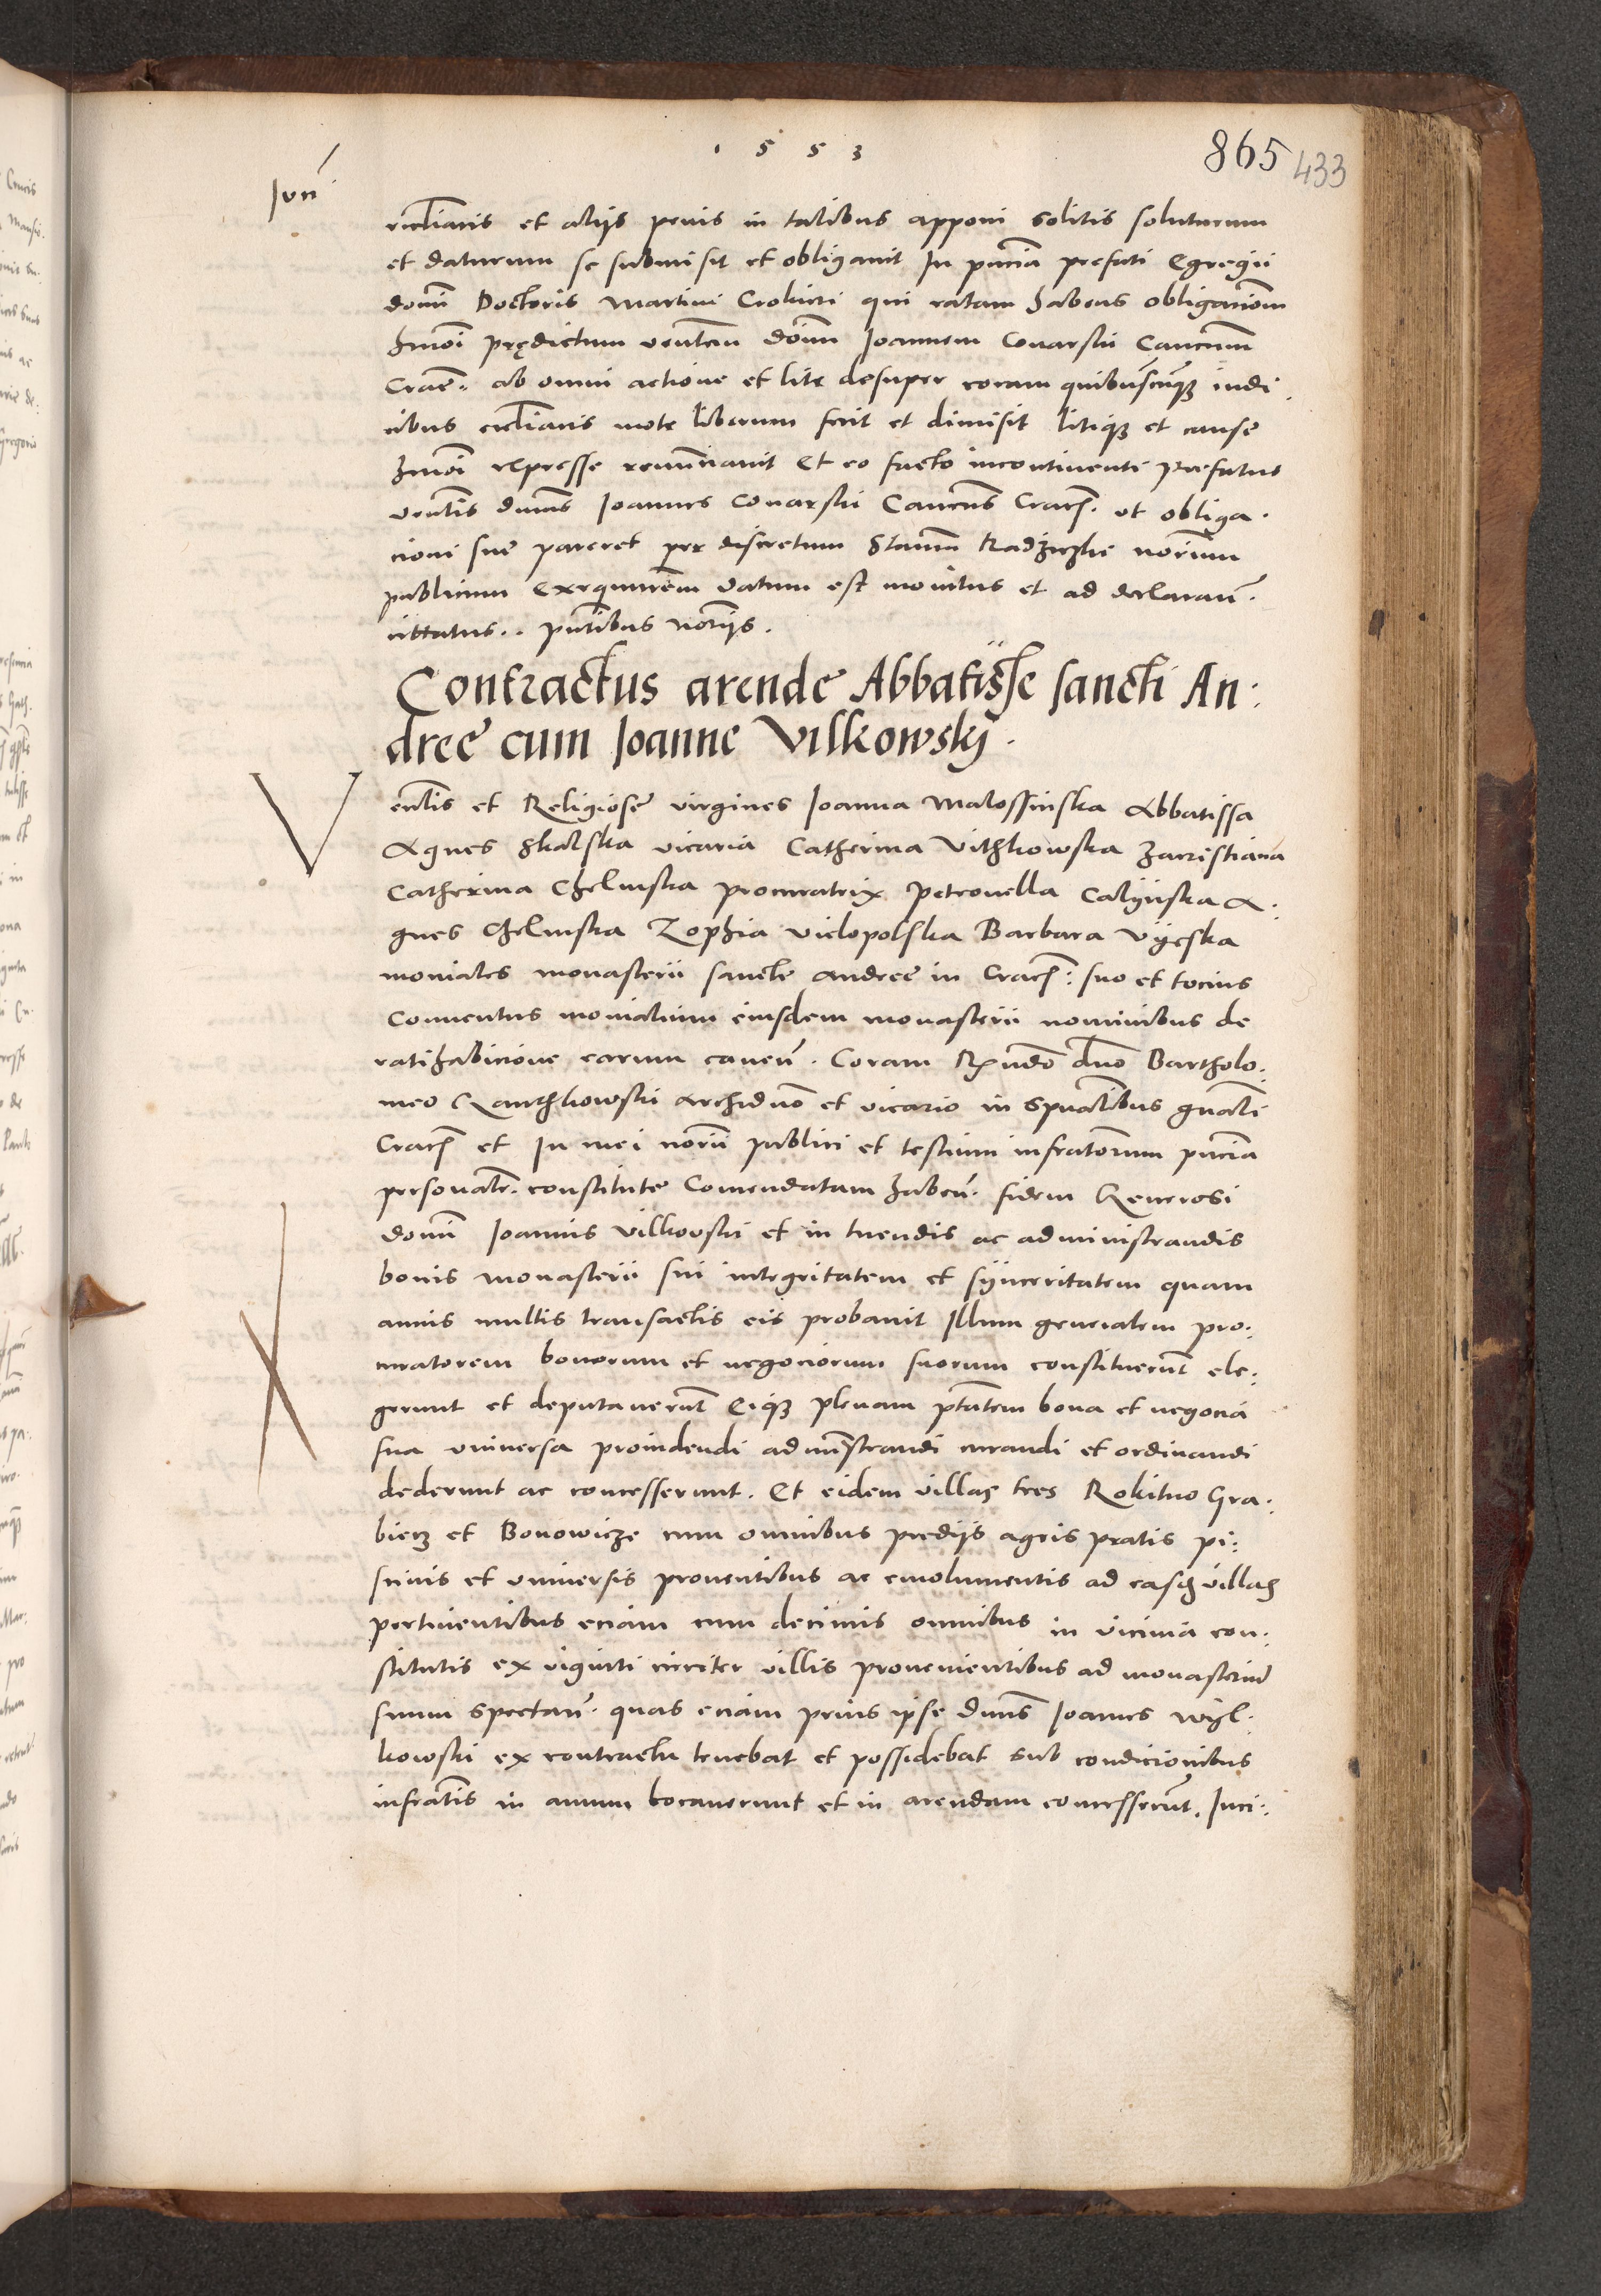 1553
865 433
Jun
ricliaris et alijs penis in talibus apponi solitis soluturum
et daturum se submisit et obligavit In pncia prefati Egregii
domi Doctoris Martini Crokieri qui ratam habens obligaciom
hmoi prędictum ventem domi Joannem Conarski Canonum
Craē. ab omni actione et lite desuper coram quibuscunqz iudi
cibus eccliacis mote liberum fecit et dimisit litiqz et cause
hmoi expresse renunciavit Et eo facto incontinenti prefatus
ventis dnus Joannes Conarski Canonus Crach. ut obliga.
cioni sue pareret per discretum Stanm notrium
publicum exequutorem datum est monitus et ad declarand.
citatus.. pntibus notrijs.
Contractus arende Abbatisse sancti An:
dree cum Joanne Vilkowskij.
Ventis et Religiose virgines Joanna Malossinska Abbatissa
Agnes Skalska vicaria Catherina Vithkowska zacristiana
Catherina Chelmska procuratrix Petronella Calijnska A:
gnes Chelmska Zophia Vielopolska Barbara Vijeska
moniales monasterii sancte Andree in Crach: suo et tocius
Conventus monialium eiusdem monasterii nominibus de
ratihabicione earum caven. Coram Rndo dno Bartholo:
meo Ganthkowski Archidno et vicario in spualibus gnali
Crach et In mei notrii publici et testium infratorum pncia
personalr. constitute Comendatam haben. fidem Generosi
domi Joannis Vilkovski et in tuendis ac administrandis
bonis monasterii sui integritatem et sijnceritatem quam
annis multis transactis eis probavit Illum generalem pro:
curatorem bonorum et negociorum suorum constituerunt ele:
gerunt et deputaverunt Eiqz plenam ptatem bona et negocia
sua universa providendi administrandi curandi et ordinandi
dederunt ac concesserunt. Et eidem villas tres Rokitno Gra:
biecz et Bonowicze cum omnibus predijs agris pratis pi:
scinis et universis proventibus ac emolumentis ad easdem villas
pertinentibus eciam cum decimis omnibus in vicinia con:
stitutis ex viginti circiter villis provenientibus ad monasterium
suum spectan. quas eciam prius ipse dnus Joannes Wijl:
kowski ex contractu tenebat et possidebat sub condicionibus
infratis in annum locaverunt et in arendam concesserunt. Inci: